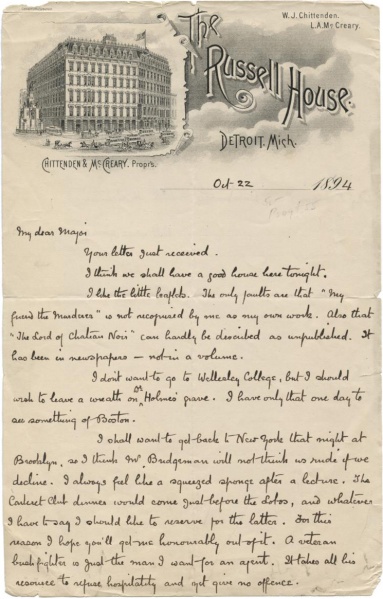 W. J. Chittenden.
L. A. McCreary.
The
Russell House.
Detroit, Mich.
Chittenden & McCreary. Propr's.
Oct 22 1894
My dear Major
Your letter just received.
I think we shall have a good house here tonight.
I like the little leaflets. The only faults are that "My
friend the Murderer" is not recognised by me as my own work. Also that
"The Lord of Chateau Noir" can hardly be described as unpublished. It
has been in newspapers — not in a volume.
I don't want to go to Wellesley College, but I should
wish to leave a wreath on Dr Holmes' grave. I have only that one day to
see something of Boston.
I shall want to get back to New York that night at
Brooklyn, so I think Mr Bridgeman will not think us rude if we
decline. I always feel like a squeezed sponge after a lecture. The
Carteret Club dinner would come just before the Lotos, and whatever
I have to say I should like to reserve for the latter. For this
reason I hope you'll get me honourably out of it. A veteran
bushfighter is just the man I want for an agent. It takes all his
resource to refuse hospitality and yet give no offence.